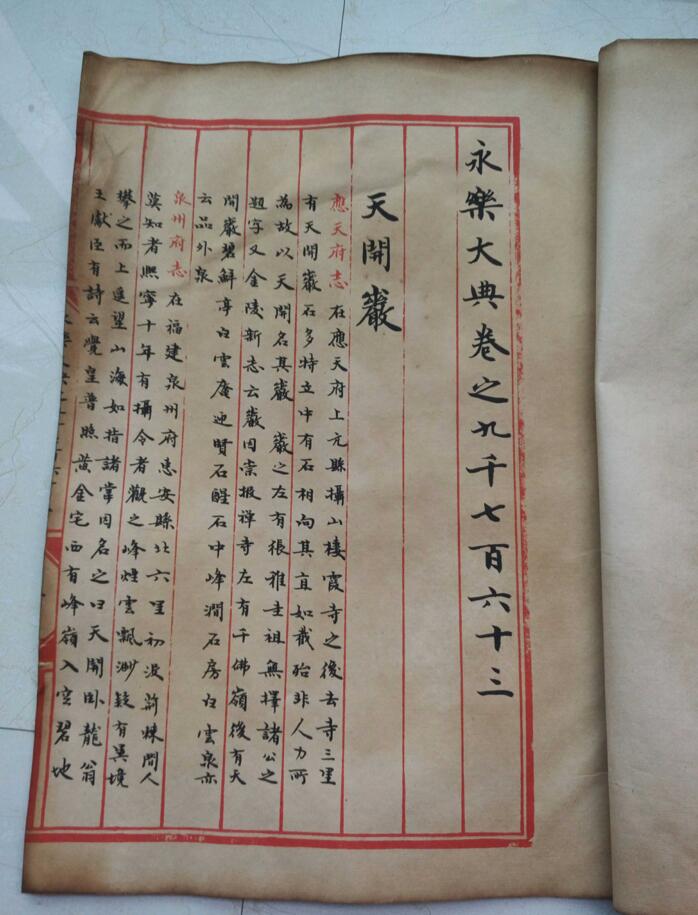 永樂大典卷之九千七百六十三
天開巖
應天府志 在應天府上元縣攝山棲霞寺之後去寺三里
有天開巖石多特立中有石相向其直如截殆非人力所
為故以天開名其巖 巖之左有張雅圭祖無擇諸公之
題字又金陵新志云巖因崇報禪寺左有千佛嶺後有天
開巖碧鮮亭白雲庵迎賢石醒石中峰澗石房白雲泉亦
云品外泉
泉州府志 在福建泉州府惠安縣北六里初没荊棘間人
莫知者熈寧十年有攝令者觀之峰煙雲飄渺疑有異境
攀之而上遥望山海如指諸掌因名之曰天開卧龍翁
王獻臣有詩云覺皇普照黃金宅西有峰嶺入空碧地